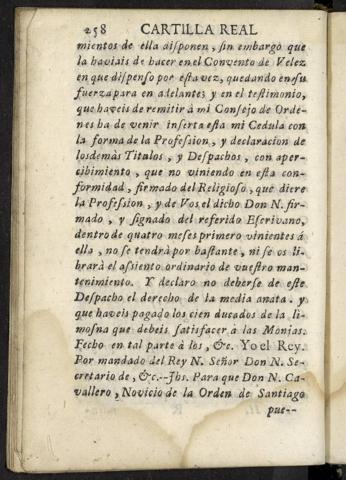 258 CARTILLA REAL
mientos de ella disponen, sin embargo que
la haviais de hacer en el Convento de Velez
en que dispenso por esta vez, quedando en su
fuerza para en adelante; y en el testimonio,
que haveis de remitir à mi Consejo de Orde-
nes ha de venir inserta esta mi Cedula con
la forma de la Profession, y declaracion de
losdemàs Titulos, y Despachos, con aper-
cibimiento, que no viniendo en esta con-
formidad, firmado del Religioso, que diere
la Profession, y de Vos el dicho Don N. fir-
mado, y signado del referido Escrivano,
dentro de quatro meses primero vinientes á
ella, no se tendrà por bastante, ni se os li-
brarà el assiento ordinario de vuestro man-
tenimiento. Y declaro no deberse de este
Despacho el derecho de la media anata. y
que haveis pagado los cien ducados de la li-
mosna que debeis satisfacer à las Monjas.
Fecho en tal parte à los, &c. Yo el Rey.
Por mandado del Rey N. Señor Don N. Se-
cretario de, &c.--Jhs. Para que Don N. Ca-
vallero, Novicio de la Orden de Santiago
pue--